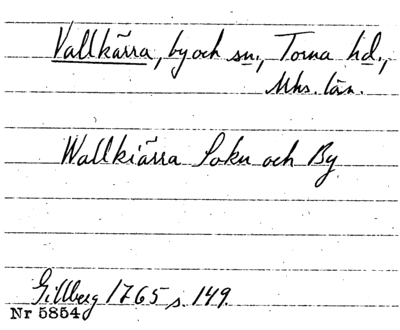 Vallkärra, by och sn., Torna hd.,
Mhs. län.
Wallkiärra Sokn och By
Gillberg 1765 s. 149.
Nr 5854